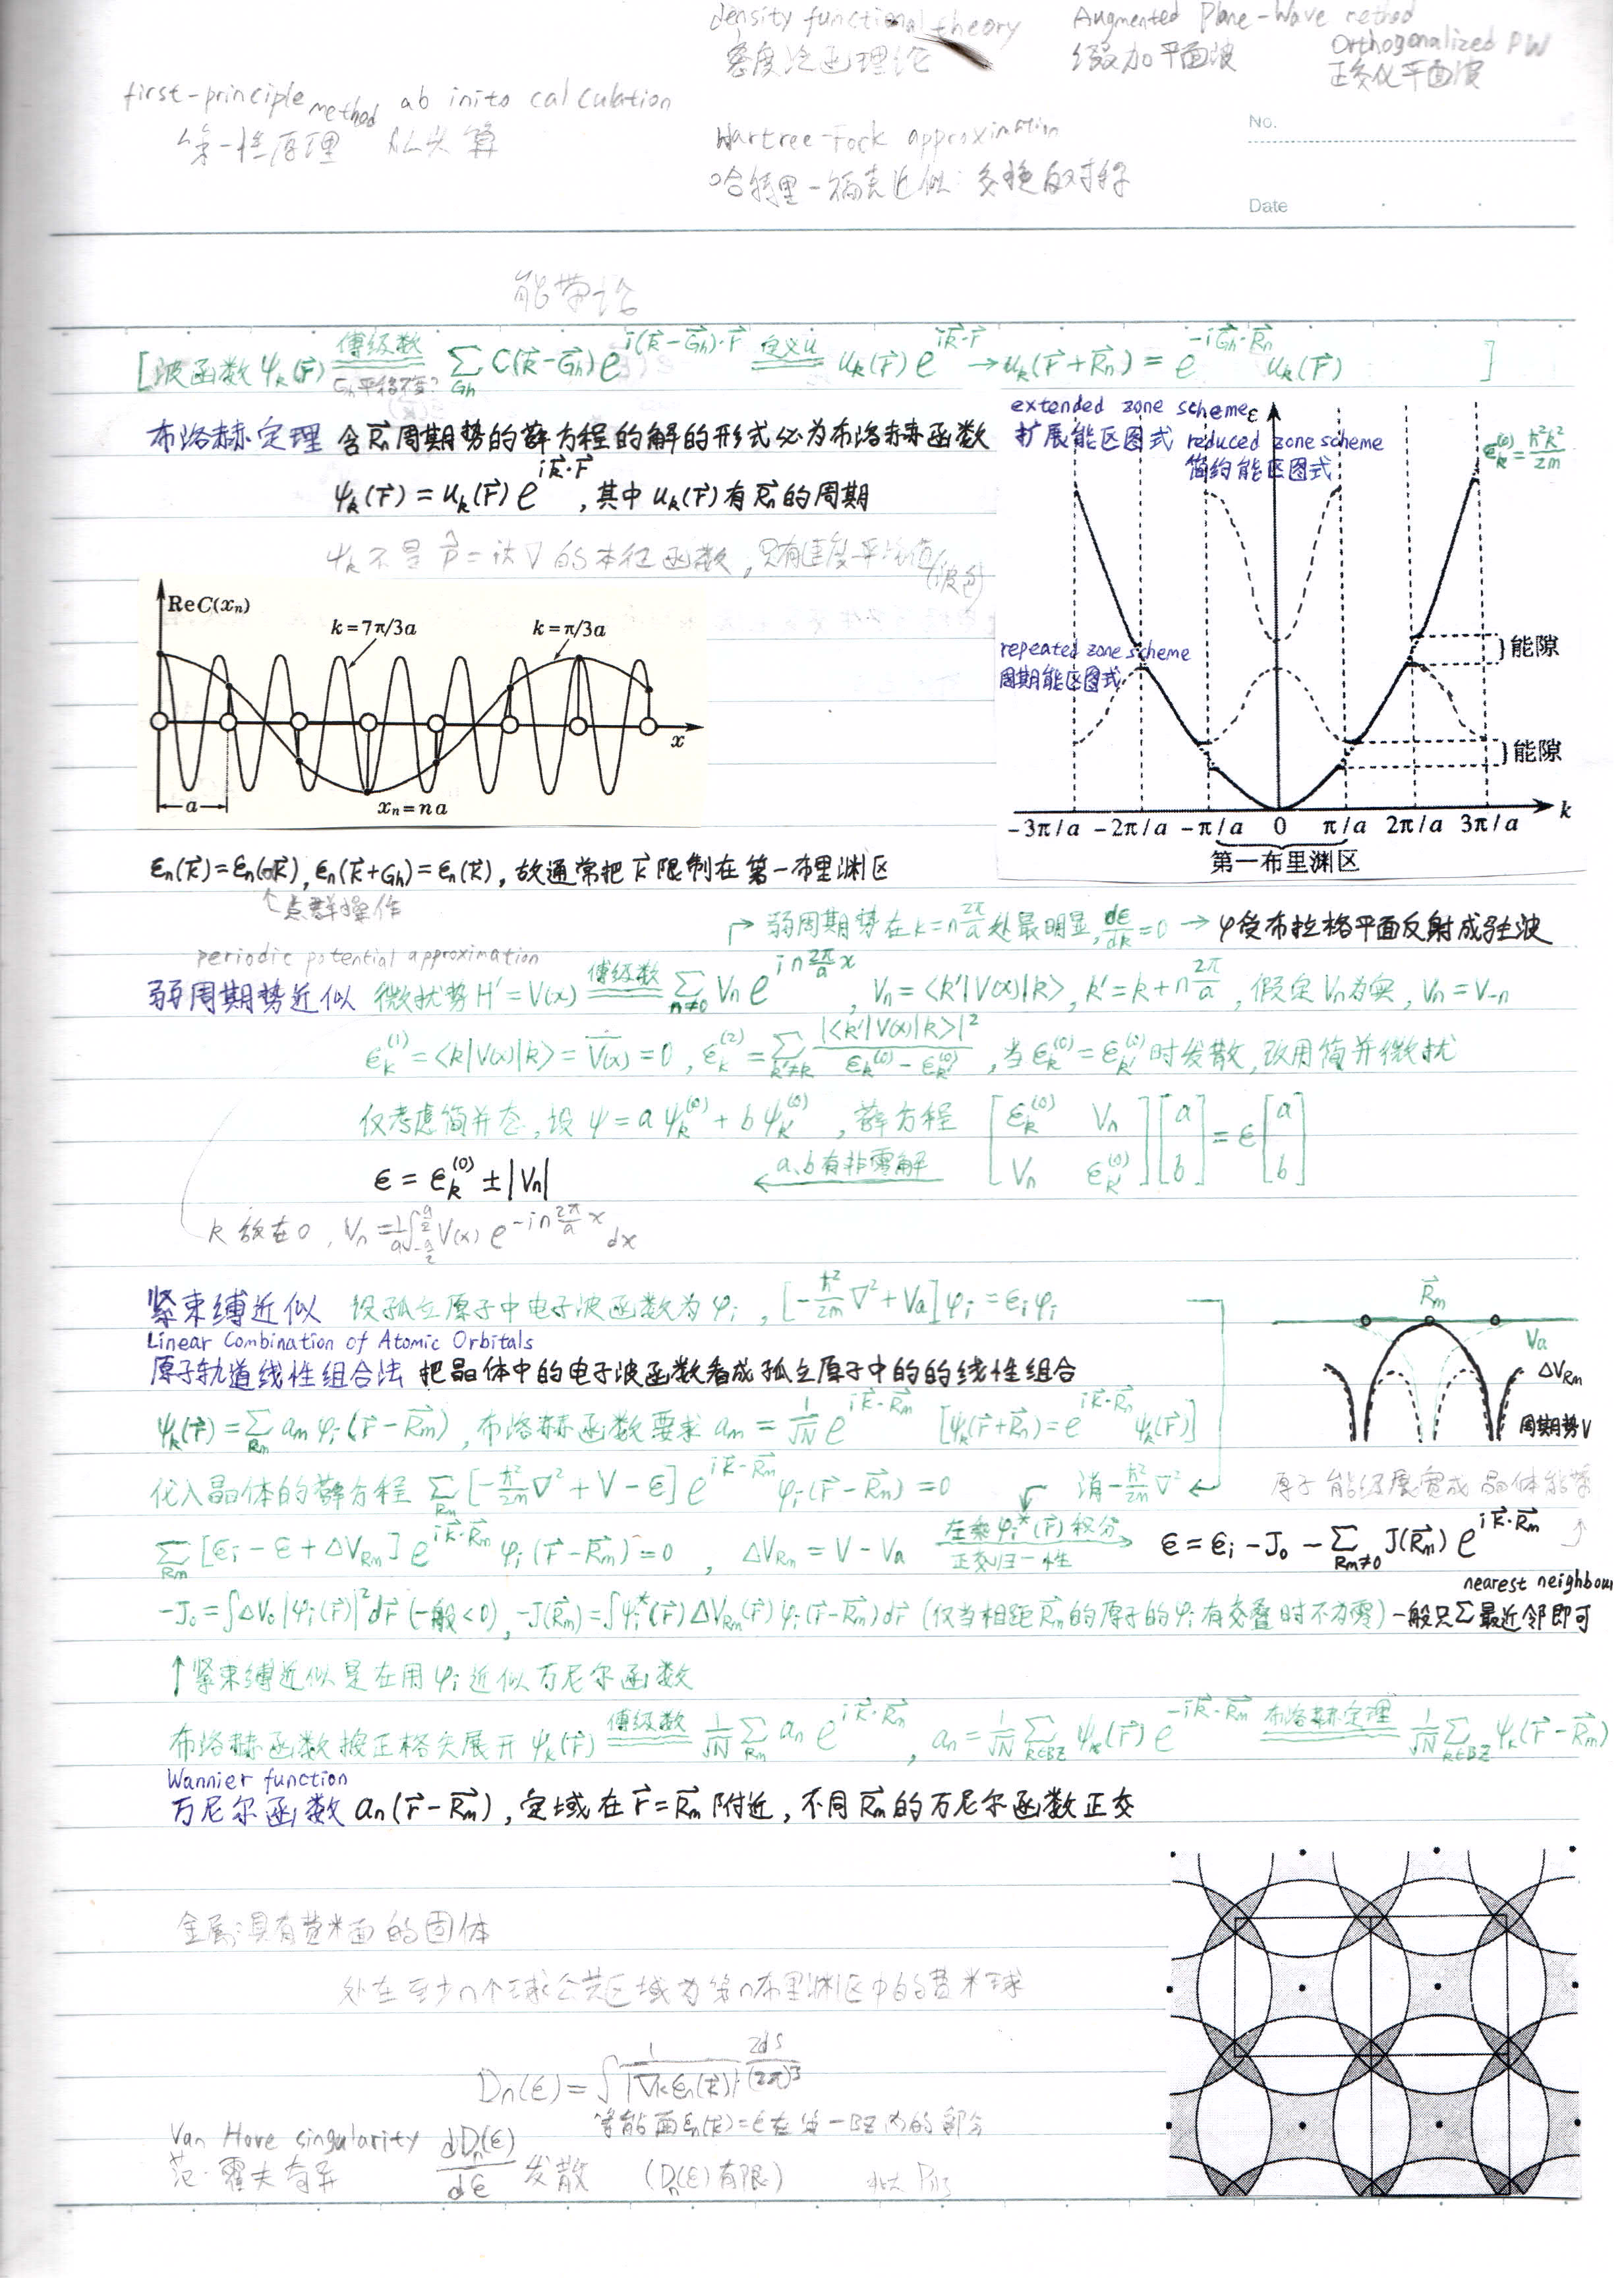 density functional theory
密度泛函理论
Augmented Plane-Wave method
缀加平面波
Orthogonalized PW
正交化平面波
first-principle method ab inito calculation
第一性原理 从头算
Hartree-Fock approximation
哈特里-福克近似:交换反对称
No.
Date
能带论
[波函数 ψₖ(r⃗) 傅级数 Σ_Gh C(k⃗-G⃗h) e^{i(k⃗-G⃗h)·r⃗} 定义u uₖ(r⃗) e^{ik⃗·r⃗} → uₖ(r⃗+R⃗n) = e^{-iG⃗h·R⃗n} uₖ(r⃗) ]
Gh平移不变?
布洛赫定理 含R⃗n周期势的薛方程的解的形式必为布洛赫函数
ψₖ(r⃗) = uₖ(r⃗) e^{ik⃗·r⃗}, 其中 uₖ(r⃗) 有 R⃗n 的周期
ψₖ 不是 p̂ = iħ∇ 的本征函数, 只有速度平均值
(波包)
extended zone scheme
扩展能区图式
reduced zone scheme
简约能区图式
ε
εₖ^(0) = ħ²k²/2m
repeated zone scheme
周期能区图式
能隙
能隙
-3π/a -2π/a -π/a 0 π/a 2π/a 3π/a k
第一布里渊区
Re C(xₙ)
k=7π/3a
k=π/3a
x
a
xₙ=na
εn(k⃗)=εn(αk⃗), εn(k⃗+Gh)=εn(k⃗), 故通常把k⃗限制在第一布里渊区
↑点群操作
弱周期势在k=n2π/a处最明显, dε/dk=0 → φ受布拉格平面反射成驻波
periodic potential approximation
弱周期势近似 微扰势H'=V(x) 傅级数 Σ_{n≠0} Vn e^{in2π/a x}, Vn=<k'|V(x)|k>, k'=k+n2π/a, 假定Vn为实, Vn=V-n
εₖ^(1)=<k|V(x)|k>=V(x)=0, εₖ^(2)=Σ_{k'≠k} |<k'|V(x)|k>|²/(εₖ^(0)-εₖ'^(0)), 当εₖ^(0)=εₖ'^(0)时发散, 改用简并微扰
仅考虑简并态, 设 ψ=aψₖ^(0)+bψₖ'^(0), 薛方程 [εₖ^(0) Vn; Vn εₖ'^(0)][a; b]=ε[a; b]
ε=εₖ^(0)±|Vn| ← a,b有非零解
k 放在0, Vn=1/a∫_{-a/2}^{a/2} V(x) e^{-in2π/a x} dx
紧束缚近似 设孤立原子中电子波函数为φi, [-ħ²/2m ∇²+Va]φi=εiφi
Linear Combination of Atomic Orbitals
原子轨道线性组合法 把晶体中的电子波函数看成孤立原子中的的线性组合
ψₖ(r⃗)=Σ_Rm am φi(r⃗-R⃗m), 布洛赫函数要求 am=1/√N e^{ik⃗·R⃗m} [ψₖ(r⃗+R⃗n)=e^{ik⃗·R⃗n} ψₖ(r⃗)]
代入晶体的薛方程 Σ_Rm [-ħ²/2m ∇²+V-ε] e^{ik⃗·R⃗m} φi(r⃗-R⃗m)=0 消-ħ²/2m ∇²
R⃗m
Va
ΔV_Rm
周期势V
原子能级展宽成晶体能带
Σ_Rm [εi-ε+ΔV_Rm] e^{ik⃗·R⃗m} φi(r⃗-R⃗m)=0, ΔV_Rm=V-Va 左乘φi*(r⃗)积分 正交归一性 → ε=εi-J₀-Σ_{Rm≠0} J(R⃗m) e^{ik⃗·R⃗m}
nearest neighbour
-J₀=∫ΔV₀|φi(r⃗)|²dr⃗ (一般<0), -J(R⃗m)=∫φi*(r⃗)ΔV_Rm(r⃗)φi(r⃗-R⃗m)dr⃗ (仅当相距R⃗m的原子的φi有交叠时不为零) 一般只Σ最近邻即可
↑紧束缚近似是在用φi近似万尼尔函数
布洛赫函数按正格矢展开 ψₖ(r⃗) 傅级数 1/√N Σ_Rn an e^{ik⃗·R⃗n}, an=1/√N Σ_{k∈BZ} ψₖ(r⃗) e^{-ik⃗·R⃗m} 布洛赫定理 1/√N Σ_{k∈BZ} ψₖ(r⃗-R⃗m)
Wannier function
万尼尔函数 an(r⃗-R⃗m), 定域在r⃗=R⃗m附近, 不同R⃗m的万尼尔函数正交
金属:具有费米面的固体
处在至少n个球公共区域为第n布里渊区中的费米球
Dn(ε)=∫ 1/|∇ₖεn(k⃗)| 2dS/(2π)³
等能面εn(k)=ε在第一BZ内的部分
Van Hove singularity
范·霍夫奇异 dDn(ε)/dε 发散 (Dn(ε)有限)